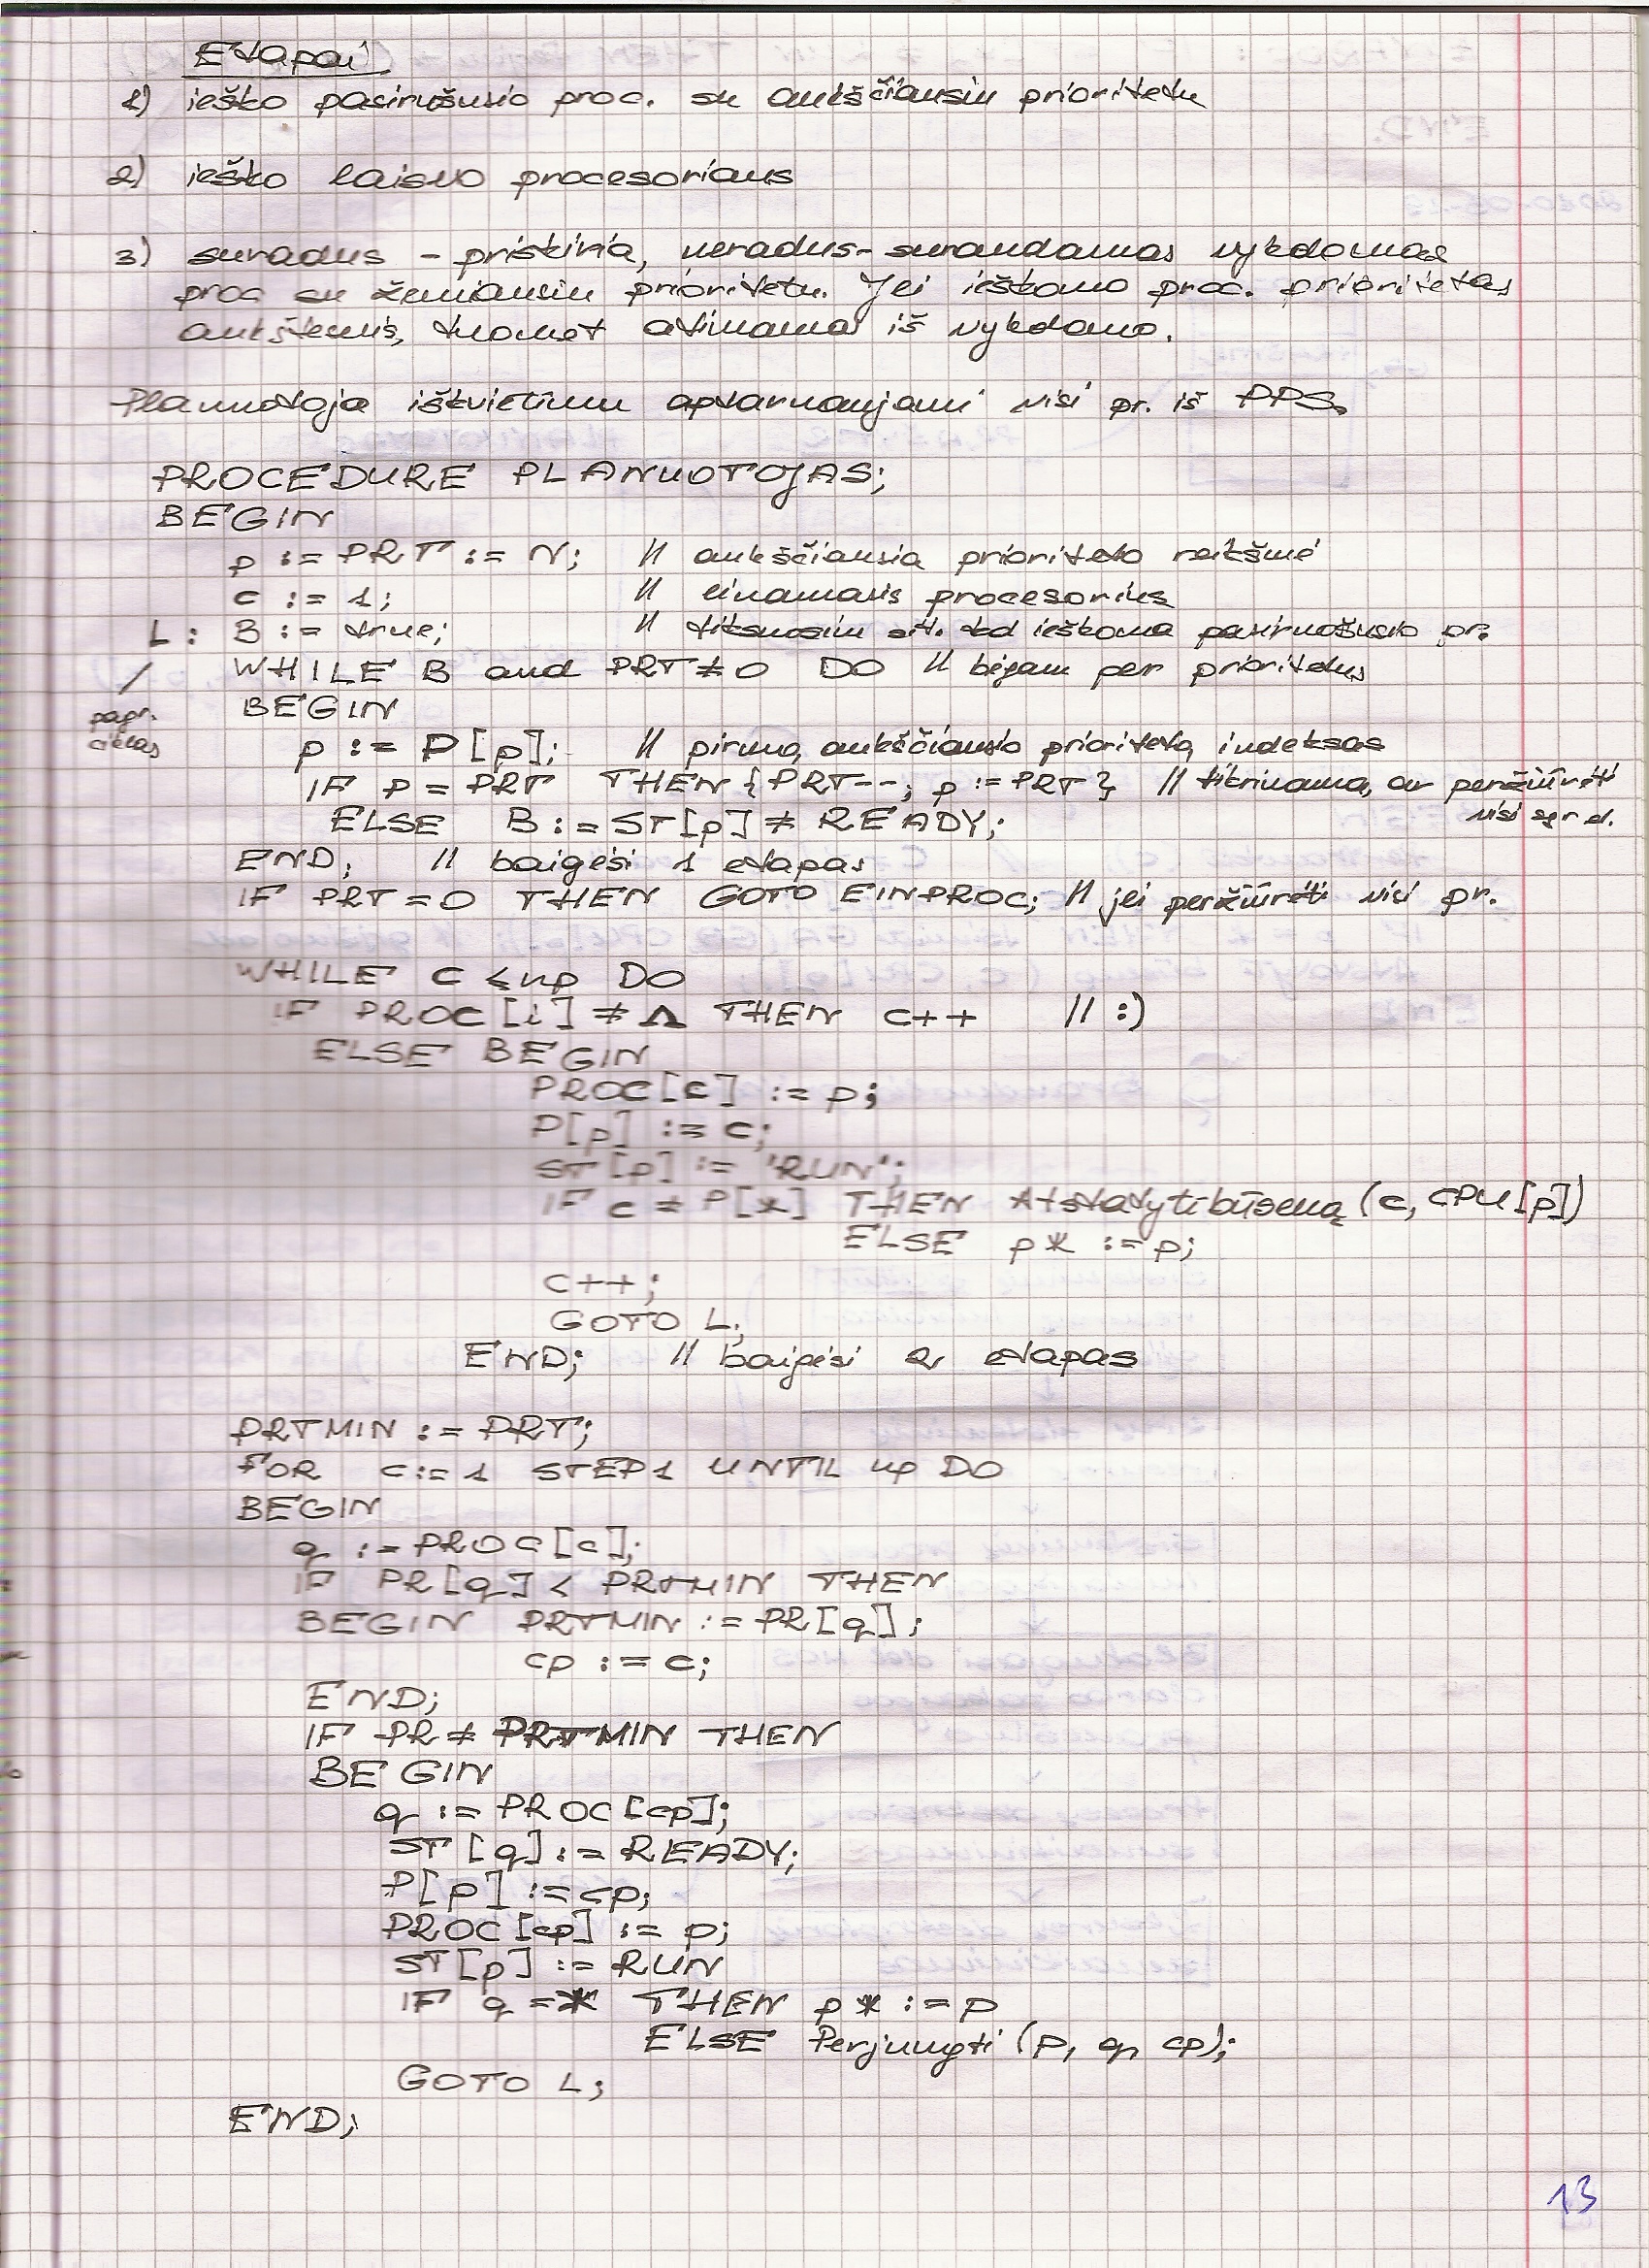 Etapai
1) ieško pasirušusio proc. su aukščiausiu prioritetu
2) ieško laisvo procesoriaus
3) suradus - priskiria, neradus - surandamas vykdomas
proc su žemiausiu prioritetu. Jei ieškomo proc. prioritetas
aukštesnis, tuomet atimama iš vykdomo.
Planuotoja iškvietimu aptarnaujami visi pr. iš PPS.
PROCEDURE PLANUOTOJAS;
BEGIN
p := PRT := N; // aukščiausia prioriteto reikšmė
c := 1; // einamasis procesorius
L: B := true; // kad ieškoma pasiruošusio pr.
/ WHILE B and PRT ≠ 0 DO // bėgam per prioritetus
BEGIN
papr.
ciklas
p := P[p]; // pirmo, aukščiausio prioriteto, indeksas
IF p = PRT THEN {PRT--; p := PRT} // tikrinama, ar peržiūrėti
visi
ELSE B := ST[p] ≠ READY;
END; // baigėsi 1 etapas
IF PRT = 0 THEN GOTO EINPROC; // jei peržiūrėti visi pr.
WHILE C ≤ np DO
IF PROC[i] ≠ Λ THEN c++ // :)
ELSE BEGIN
PROC[c] := p;
P[p] := c;
ST[p] := 'RUN';
IF c ≠ P[*] THEN Atstatytibūseną (c, CPU[p])
ELSE p* := p;
c++;
GOTO L;
END; // baigėsi 2 etapas
PRTMIN := PRT;
FOR c := 1 STEP 1 UNTIL np DO
BEGIN
q := PROC[c];
IF PR[q] < PRTMIN THEN
BEGIN PRTMIN := PR[q];
cp := c;
END;
IF PR ≠ PRTMIN THEN
BEGIN
q := PROC[cp];
ST[q] := READY;
P[p] := cp;
PROC[cp] := p;
ST[p] := RUN
IF q = * THEN p* := p
ELSE Perjungti (p, q, cp);
GOTO L;
END;
13